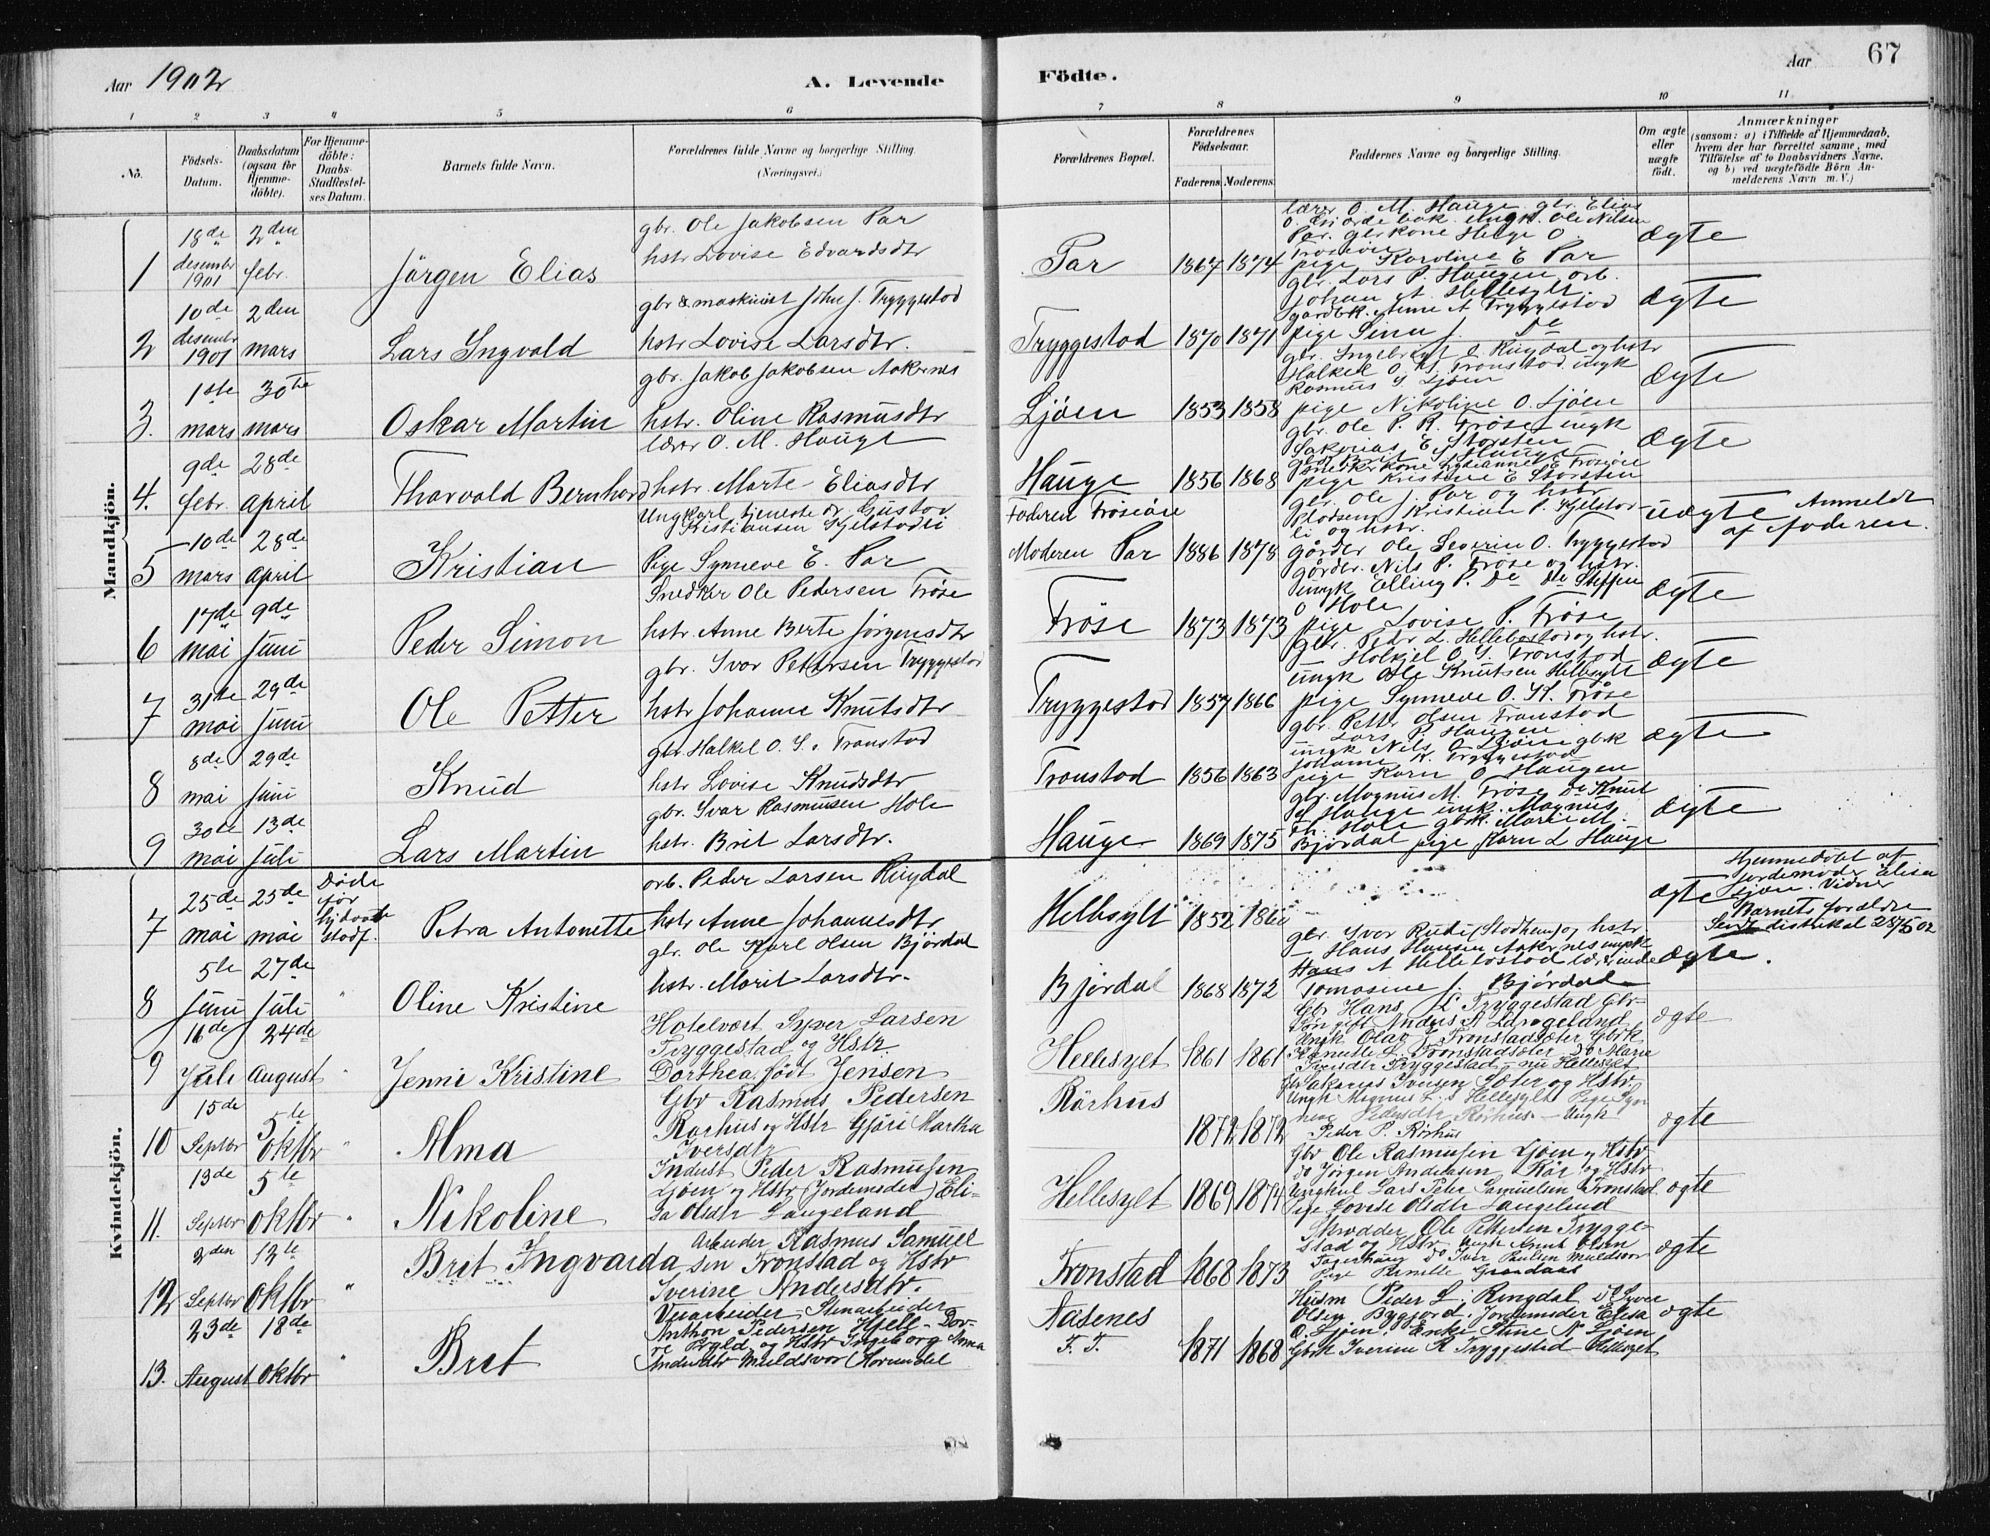 Aar 1902
A. Levende
Födte.
Aar
67
1 2 3 4 5 6 7 8 9 10 11
No.
Födsels-Datum.
Daabsdatum (ogsaa för Hjemme-döbte).
For Hjemme-döbte: Daabs-Stadfestel-ses Datum.
Barnets fulde Navn.
Forældrenes fulde Navne og borgerlige Stilling. (Næringsvei.)
Forældrenes Bopæl.
Forældrenes Födselsaar.
Faderens. Moderens.
Faddernes Navne og borgerlige Stilling.
Om ægte eller uægte födt.
Anmærkninger
(saasom: a) i Tilfælde af Hjemmedaab, hvem der har forrettet samme, med Tilföielse af to Daabsvidners Navne, og b) ved uægtefödte Börn An-melderens Navn m. V.)
Mandkjön.
1 18de desember 1901 2den febr. Jörgen Elias
gbr. Ole Jakobsen Par
hstr Lovise Edvardsdtr
Par 1867 1874
lærer O. M. Hauge gbr. Elias
Par. gbrkone Helge O.
pige Karoline E Par
ægte
2 10de desembr 1901 2den mars Lars Ingvald
gbr & maskinist John J. Tryggestad
hstr Lovise Larsdtr.
Tryggestad 1870 1871
gbr. Lars P. Haugen arb.
Johan A. Hellesylt
gardbk. Anne A Tryggestad
pige Sina J. De
ægte
3. 1ste mars 30te mars Oskar Martin
gbr. Jakob Jakobsen Aakernes
hstr. Oline Rasmusdtr
Ljöen 1853 1858
gbr. Ingebrigt O. Ringdal og hstr
Halkel O. S. Tronstad. ungk
Rasmus S. Ljöen
pige Nikoline O. Ljöen
ægte
4. 9de febr. 28de april Thorvald Bernhard
lærer O. M. Hauge
hstr. Marte Eliasdtr
Hauge 1856 1868
gbr. Ole P. R. Fröse ungk
Sakarias E Storsten
pige Kristine E Storsten
ægte
5 10de mars 28de april Kristian
Ungkarl tjeneste dr Gustav
Kristiansen Gjelstadli
Pige Synneve E. Par
Faderen Fröseöie
Moderen Par 1886 1878
gbr. Ole J. Par og hstr
Plodsem Kristian P. Gjelstad-
li og hstr.
gårdbr Ole Severin O. Tryggestad
uægte Anmeldt
af faderen.
6 17de mai 9de Juni Peder Simon
Snedker Ole Pedersen Fröse
hstr. Anne Berte Jörgensdtr
Fröse 1873 1873
gårdbr. Nils P. Fröse og hstr.
ungk Elling P. De De Steffen
O Hole
pige Lovise P. Fröse
ægte
7 31te mai 29de Juni Ole Petter
gbr. Ivar Petersen Tryggestad
hstr Johanne Knutsdtr
Tryggestad 1857 1866
gbr. Peder L. Hellebostad og hstr.
Halkjel O S. Tronstad
ungk Ole Knutsen Hellesylt
pige Synneve O. K. Fröse
ægte
8 8de mai 29de Juni Knud
gbr. Halkel O. S. Tronstad
hstr Lovise Knudsdtr
Tronstad 1856 1863
gbr. Petter Olsen Tronstad
Lars P. Haugen
ungk Nils O Ljöen gbk
Johanne K. Tryggestad
pige Karn O Haugen
ægte
9 30te mai 13de Juli Lars Martin
gbr. Ivar Rasmusen Hole
hstr. Brit Larsdtr.
Hauge 1869 1875
gbr. Magnus M. Fröse De Knut
S Hauge ungk. Magnus
Th. Hole gbk. Marie M.
Björdal pige Karn L Hauge
ægte
Kvindekjön.
7 25de mai 25de mai Döde för
Petra Antonette
arb. Peder Larsen Ringdal
hstr Anne Johannesdtr
Hellesylt 1852 1860
ægte
Hjemmedöbt af
jordemoder Elisa
Ljöen. Vidner
Barnets foreldre
Sendt distriktet 28/5 02
8 5te Juni 27de Juli " Oline Kristine
gbr. Ole Karl Olsen Björdal
hstr. Marit Larsdtr.
Björdal 1868 1872
gbr. Ivar Rudi (Stadheim) og hstr
Hans Hansen Aakernes ungk
Hans A Hellebostad lærerinde
Tomasine J. Björdal
ægte.
9 16de Juli 24de August " Jenni Kristine
Hotelvært Syver Larsen
Tryggestad og Hstr
Dorthea född Jensen
Hellesylt 1861 1861
Gbr Hans L Tryggestad Gbr-
Sön gift Anders A Langeland
Ungk Olav E Tronstadsæter Gbrk
Pernille L. Tronstadsæter do Marie
Iversdtr Tryggestad - nu Hellesylt
ægte
10 15de Septbr 5te oktbr " Alma
Gbr Rasmus Pedersen
Rørhus og Hstr Gjöri Martha
Iversdtr
Rörhus 1872 1872
gbr Sakarias Iversen Sæter og Hstr.
Ungk Magnus L. S Hellesylt Pige Syn
neve Pedersdtr Rørhus - Ungk
Peder P. Rörhus
ægte
11. 13de Septbr 5te oktbr " Nikoline
Indust Peder Rasmusen
Ljöen og Hstr (Jordemoder) Eli-
sa Olsdtr Langeland
Hellesylt 1869 1874
Gbr Ole Rasmusen Ljöen og Hstr
do Jörgen Andersen Rør og Hstr
Ungkarl Lars Peter Samuelsen Tronstad
Pige Lovise Olsdtr Langeland
ægte
12 2den Septbr 12te Oktbr " Brit Ingvarda
Arbeider Rasmus Samuel
sen Tronstad og Hstr
Iverine Andersdtr.
Tronstad 1868 1873
Skrædder Ole Pettersen Trygge-
stad og Hstr Ungk Knut Olsen
Fagerhaug do Iver Paulsen Muldsvor
Pige Pernille Grandaas
ægte
13. 23de August 18de oktbr " Bret
Veiarbeider Stenarbeider
Anthon Pedersen Hjell - Dov-
re og Hstr Ingeborg Anna
Andersdtr Muldsvor Norangdal
Aasenes
F. F. 1871 1868
Husm Peder L. Ringdal do Syver
Olsen Bygsjord, Jordemoder Elisa
O. Ljöen, Enke Stine N Ljöen
Gbrk Iverine R Tryggestad Hellesylt
ægte